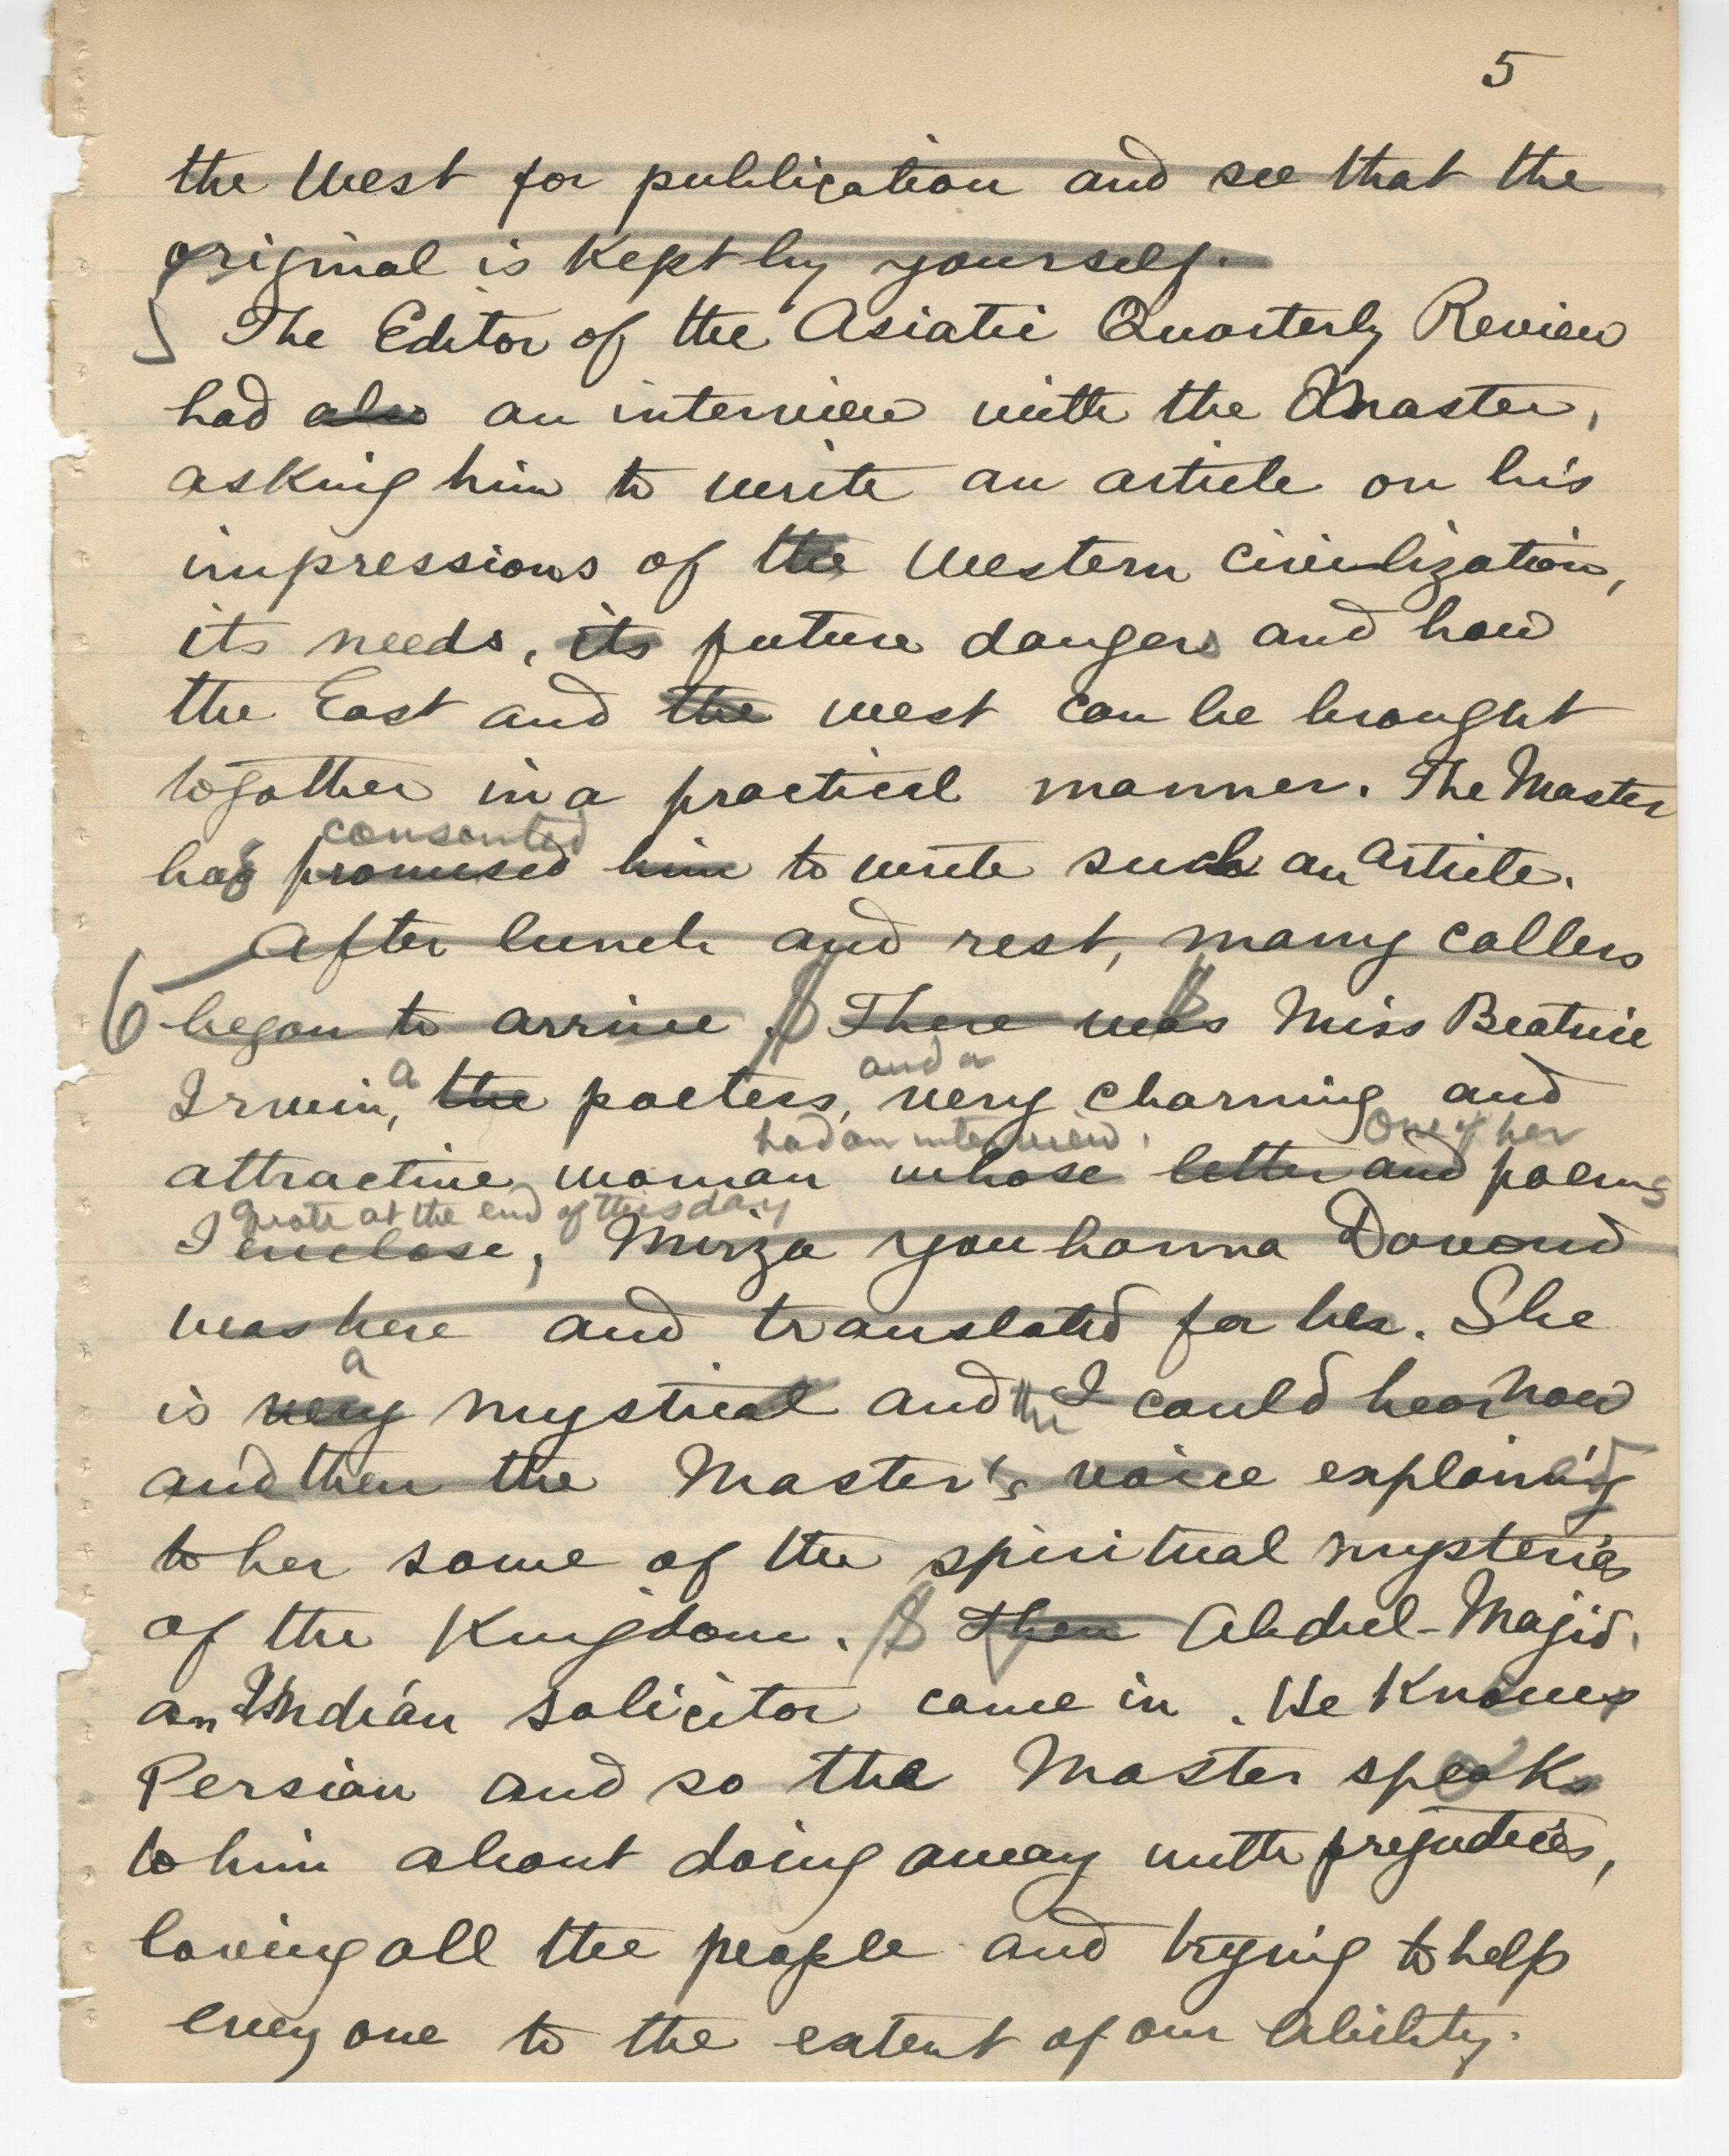 5
the West for publication and see that the
original is kept by yourself.
5 The Editor of the Asiatic Quarterly Review
had also an interview with the Master,
asking him to write an article on his
impressions of the Western civilization,
its needs, its future dangers and how
the East and the west can be brought
together in a practical manner. The Master
consented
has promised him to write such an article.
After lunch and rest, many callers
6 began to arrive. There was Miss Beatrice
a and a
Irwin, the poetess, very charming and
had an interview. One of her
attractive woman whose letter and poems
quote at the end of this day
I enclose, Mirza Youhanna Davoud
was here and translated for her. She
a
is very mystical and the I could hear now
and then the Master's voice explaining
to her some of the spiritual mysteries
of the Kingdom. Then Abdul-Majid,
an Indian solicitor came in. He knows
Persian and so the Master speaks
to him about doing away with prejudices,
loving all the people and trying to help
every one to the extent of our ability.